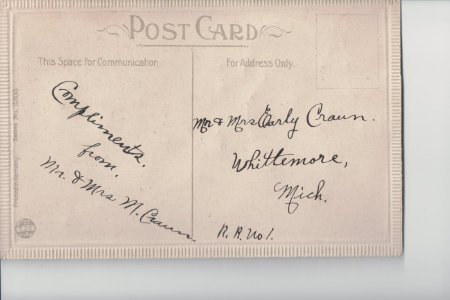 POST CARD
This Space for Communication.
For Address Only.
Compliments.
from.
Mr. & Mrs M. Craun.
Mr & Mrs Early Craun.
Whittemore,
Mich.
R. R. No 1.
Printed in Germany
Series No. 2200